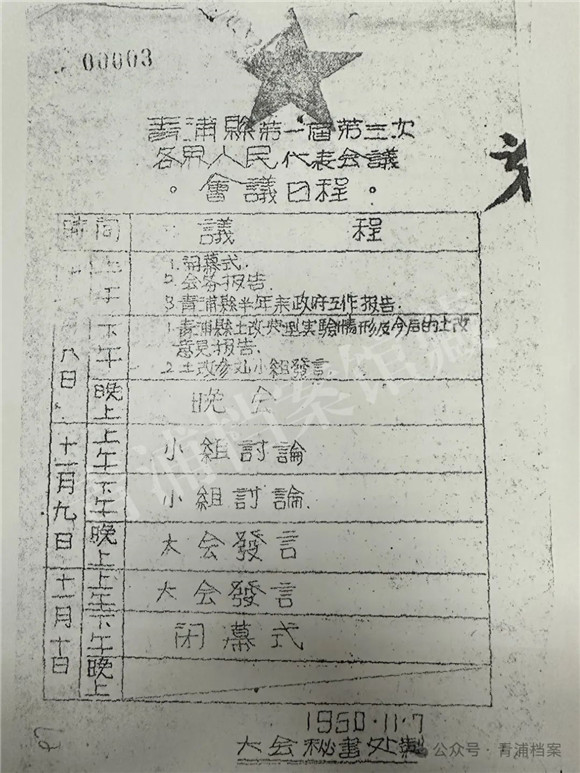 00003
青浦縣第一届第三次
各界人民代表会議
。會議日程。
時間 議程
上午
1.開幕式.
2.会務报告.
3.青浦縣半年来政府工作报告.
下午
1.青浦縣土改典型实驗情形及今后的土改
意見报告.
2.土改参观小組發言
八日
晚上 晚会
十一月九日
上午 小組討論
下午 小組討論
晚上 大会發言
十一月十日
上午 大会發言
下午 闭幕式
晚上
1950·11·7
大会秘書处製
青浦档案馆藏
公众号·青浦档案